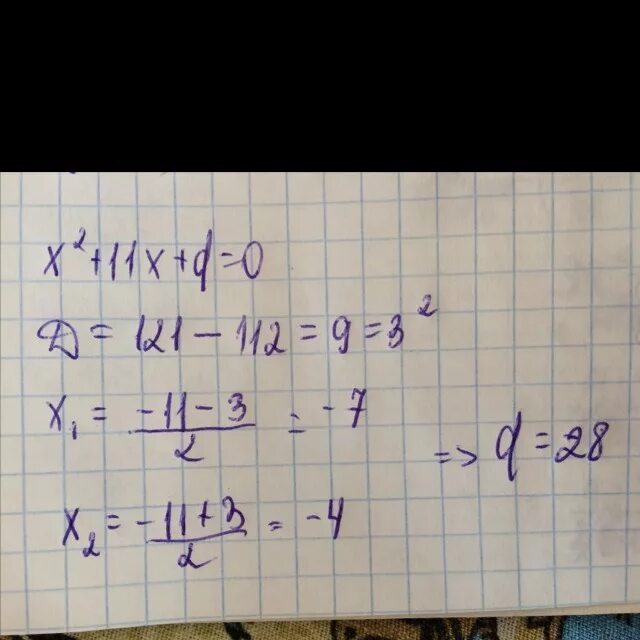 x²+11x+q=0
D = 121 - 112 = 9 = 3²
x₁ = (-11-3)/2 = -7
=> q = 28
x₂ = (-11+3)/2 = -4